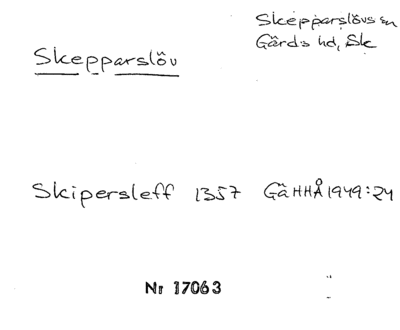 Skepparslövs sn
Gärds hd, Sk
Skepparslöv
Skipersleff 1357 GäHHÅ 1949:24
Nr 17063